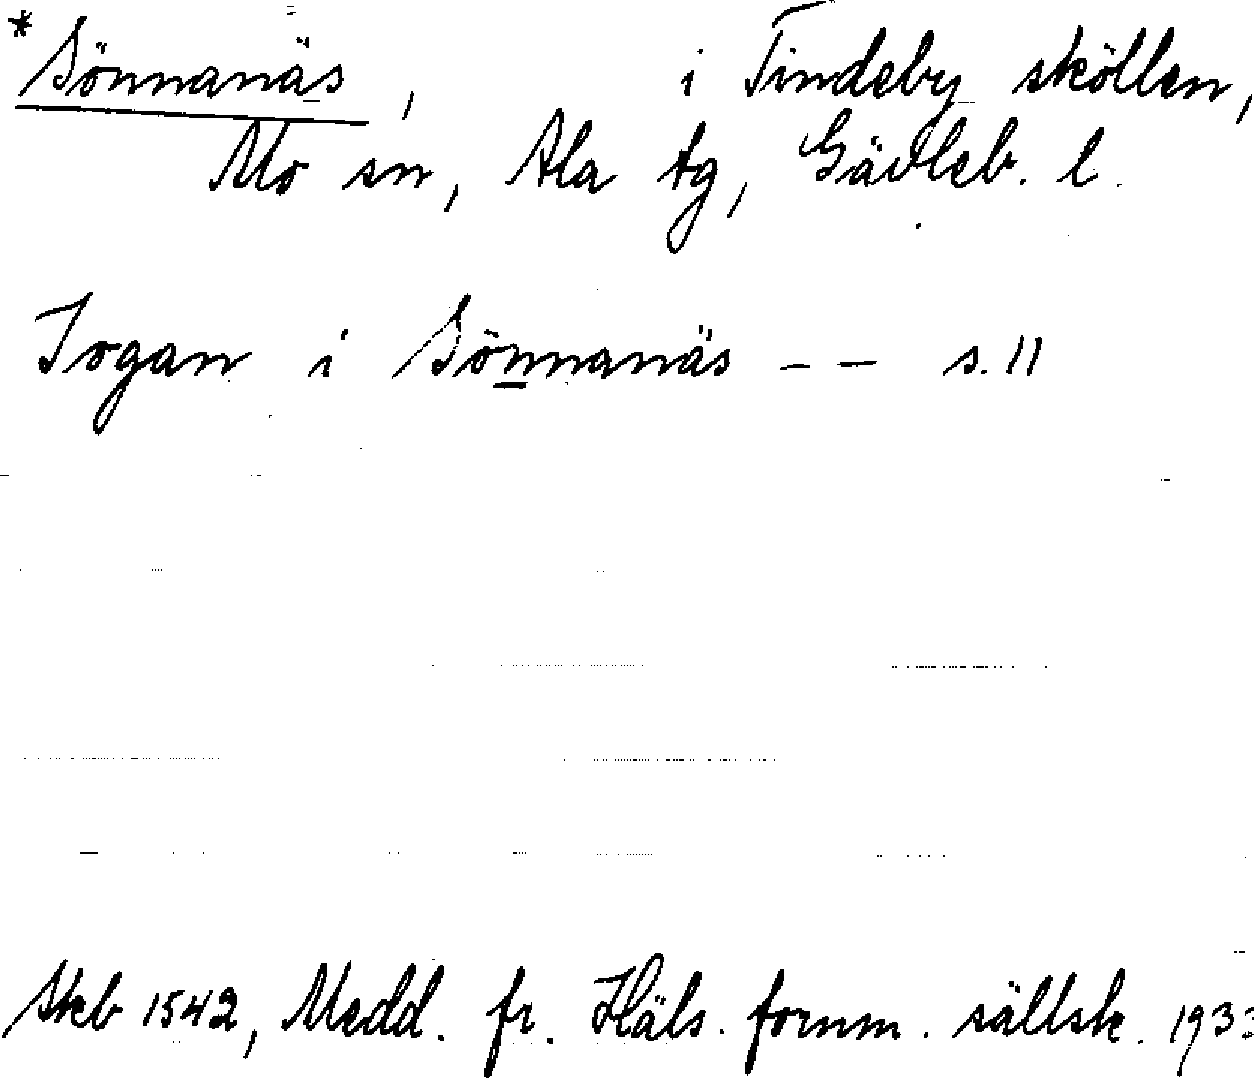 *Sönnanäs, i Tindeby sköllen,
Mo sn, Ala tg, Gävleb. l.
Jogan i Sönnanäs -- s. 11
Skb 1542, Medd. fr. Häls. fornm. sällsk. 1933